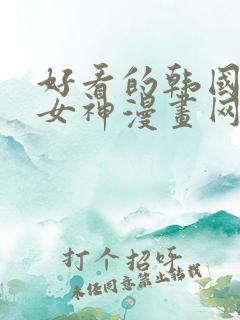 好看的韩国
女神漫畫网
打个招呼
未经同意禁止转载